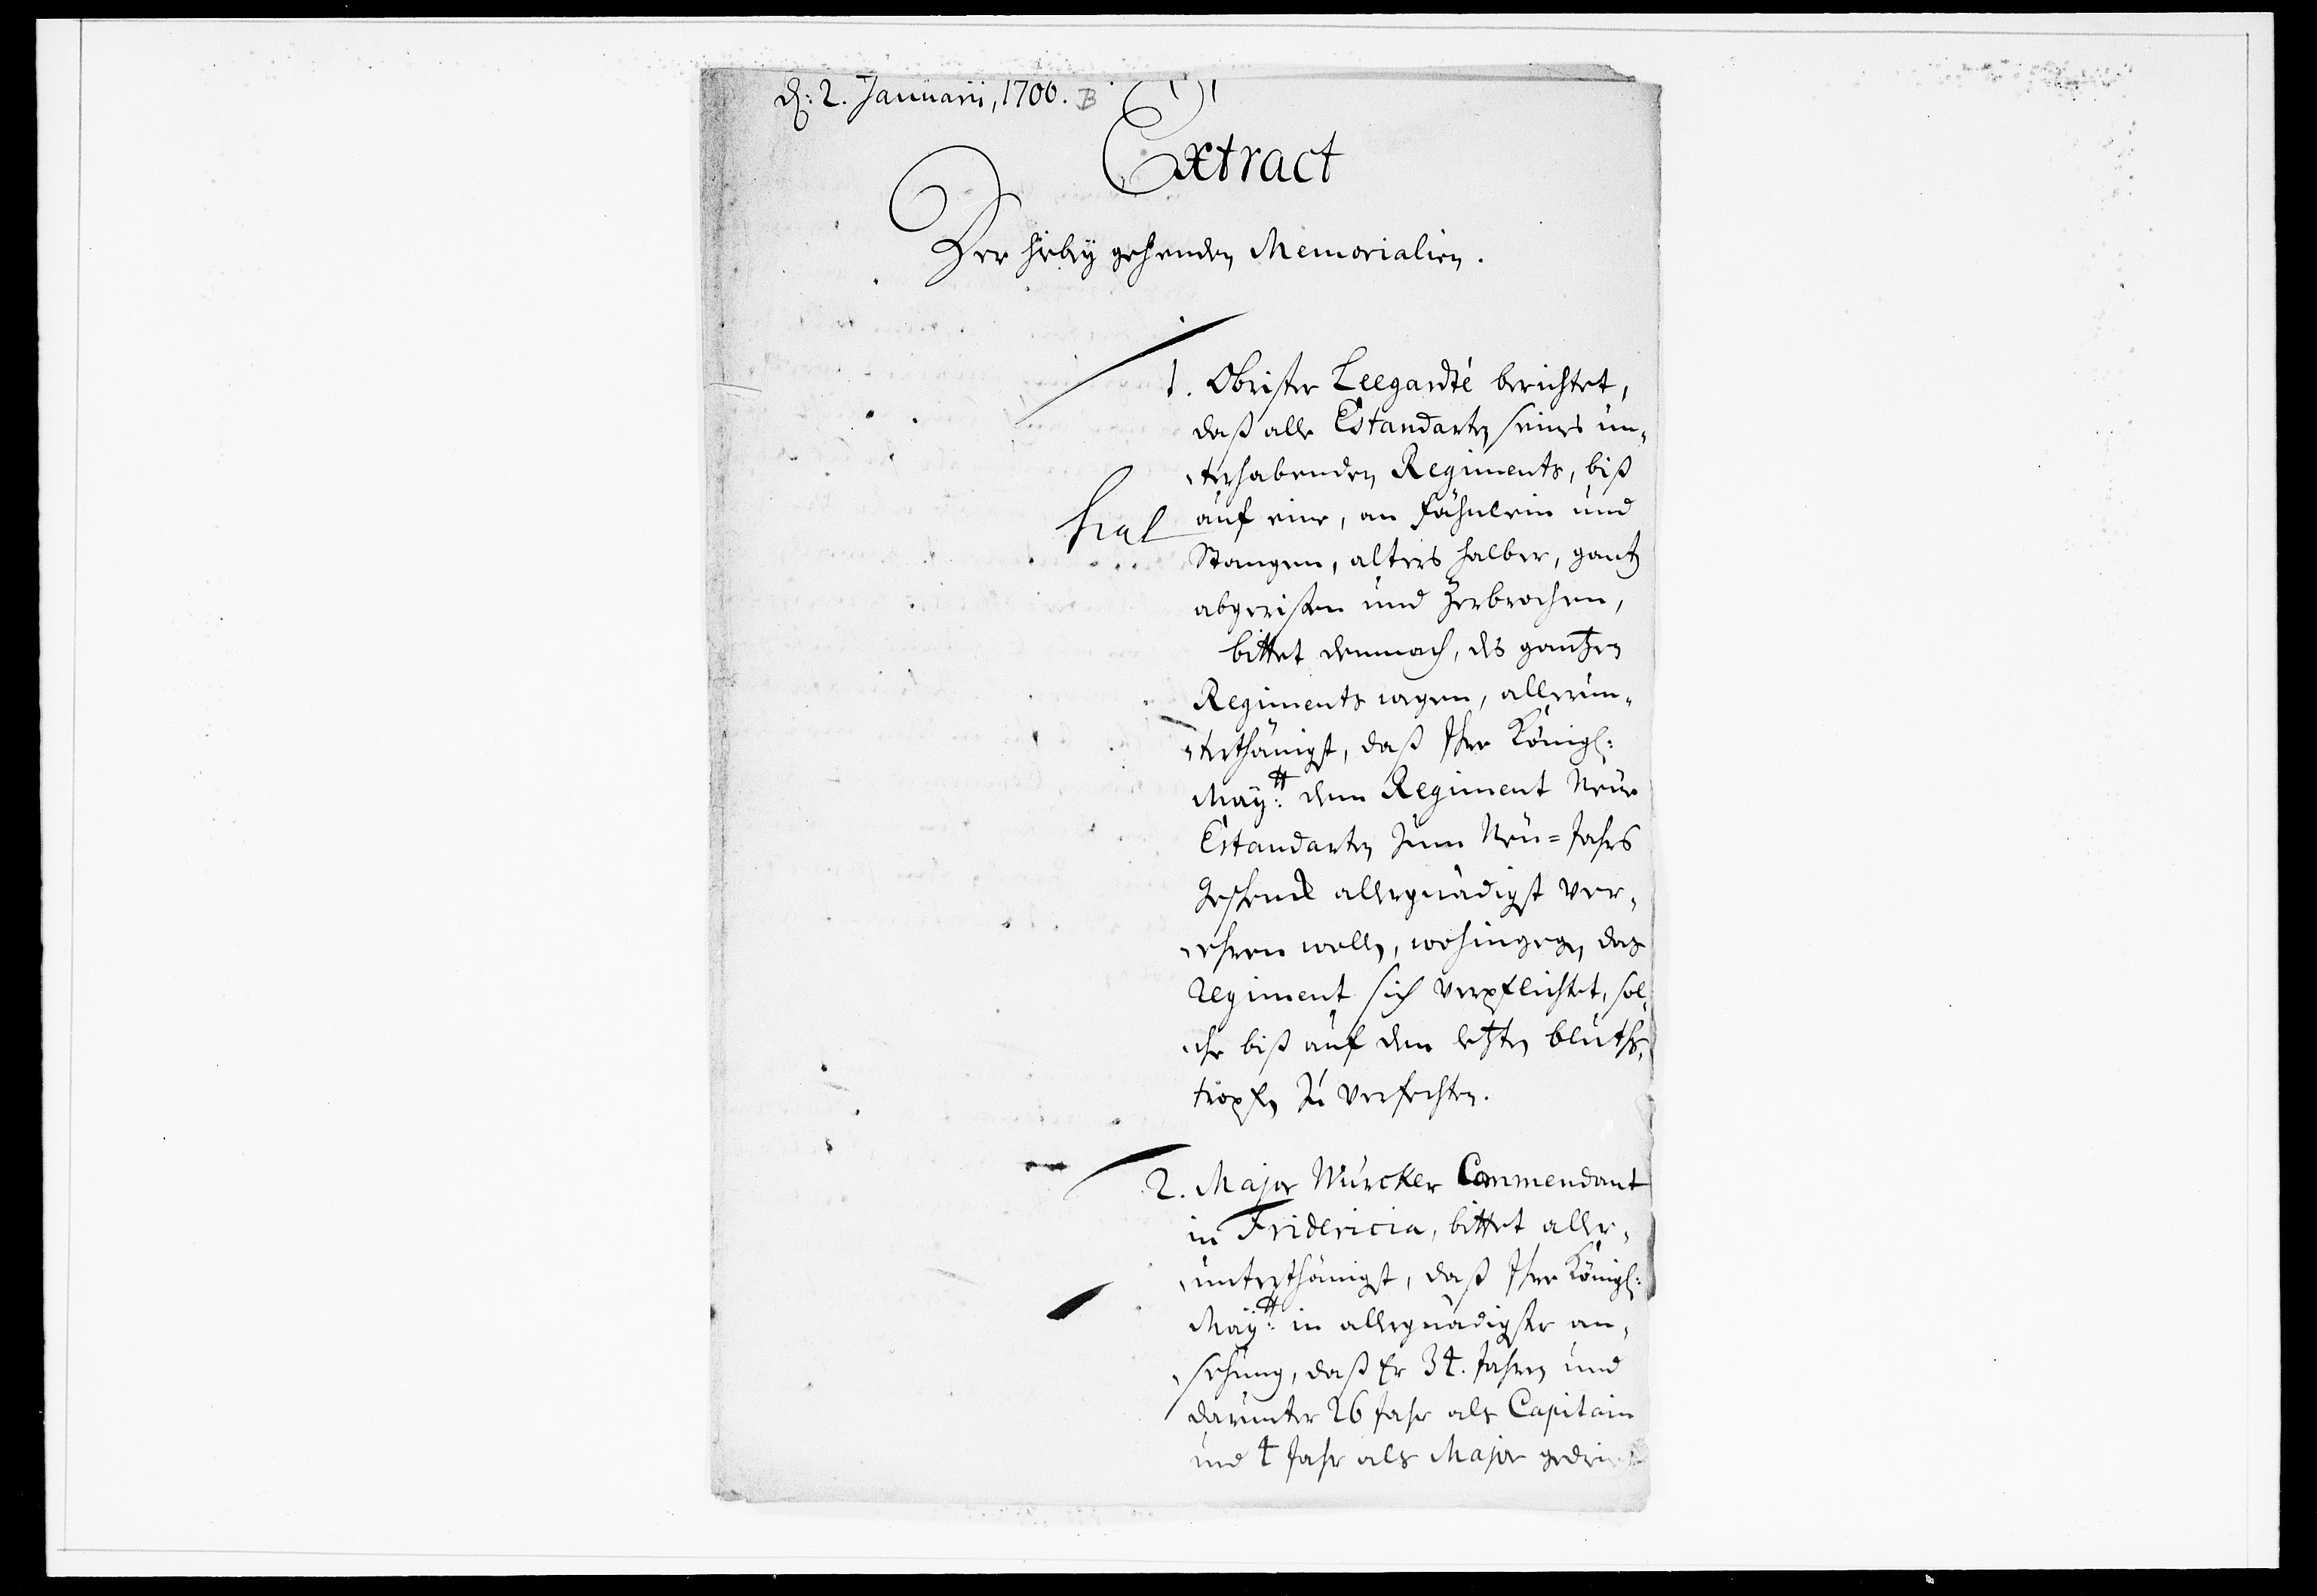 d: 2. Januarii, 1700. B
Extract
Der hiebeÿ gehenden Memorialien.
1. Obrister Leegardté berichtet,
daß alle Estandarten seines un-
terhabenden Regiments, biß
auf eine, an Fähnlein und
Stangen, alters halber, gantz
abgerißen und zerbrochen,
bittet demnach, des gantzen
Regiments wegen, allerun-
terthänigst, daß Ihre Königl:
Maÿ:tt dem Regiment Neue
Estandarten zum Neu=Jahrs
Geschenck allergnädigst ver-
ehren wollen, wohingegen das
Regiment sich verpflichtet, sol-
che biß auf dem letzten bluths-
tropfen zu verfechten.
2. Major Würcker Commendant
in Fridericia, bittet aller-
unterthänigst, daß Ihre Königl:
Maÿ:tt in allergnädigster an-
sehung, daß Er 34. Jahren und
darunter 26 Jahr als Capitain
und 4 Jahr als Major gedient